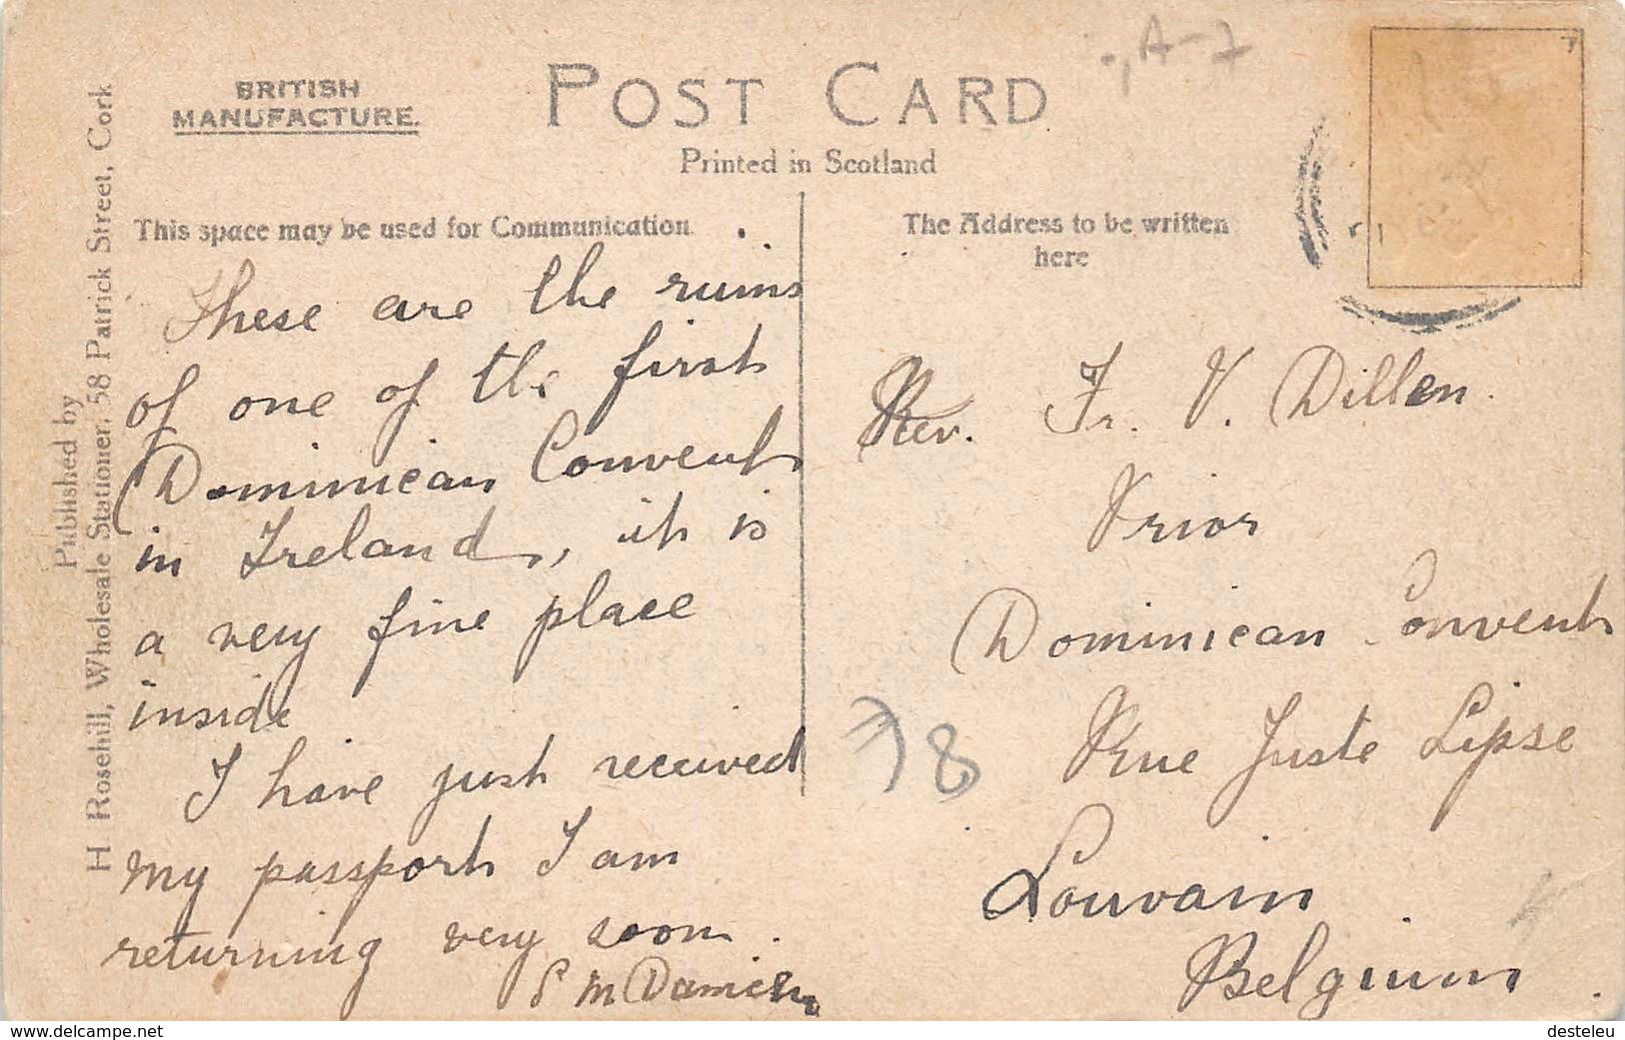 A-7
BRITISH
MANUFACTURE.
POST CARD
Printed in Scotland
This space may be used for Communication
The Address to be written
here
Published by
H Rosehill, Wholesale Stationer, 58 Patrick Street, Cork
These are the ruins
of one of the first
Dominican Convent
in Ireland, it is
a very fine place
inside
I have just received
my passport I am
returning very soon.
S M
Rev. Fr. V. Dillen.
Prior
Dominican Convent
Rue Juste Lipse
Louvain
Belgium.
78
www.delcampe.net
desteleu